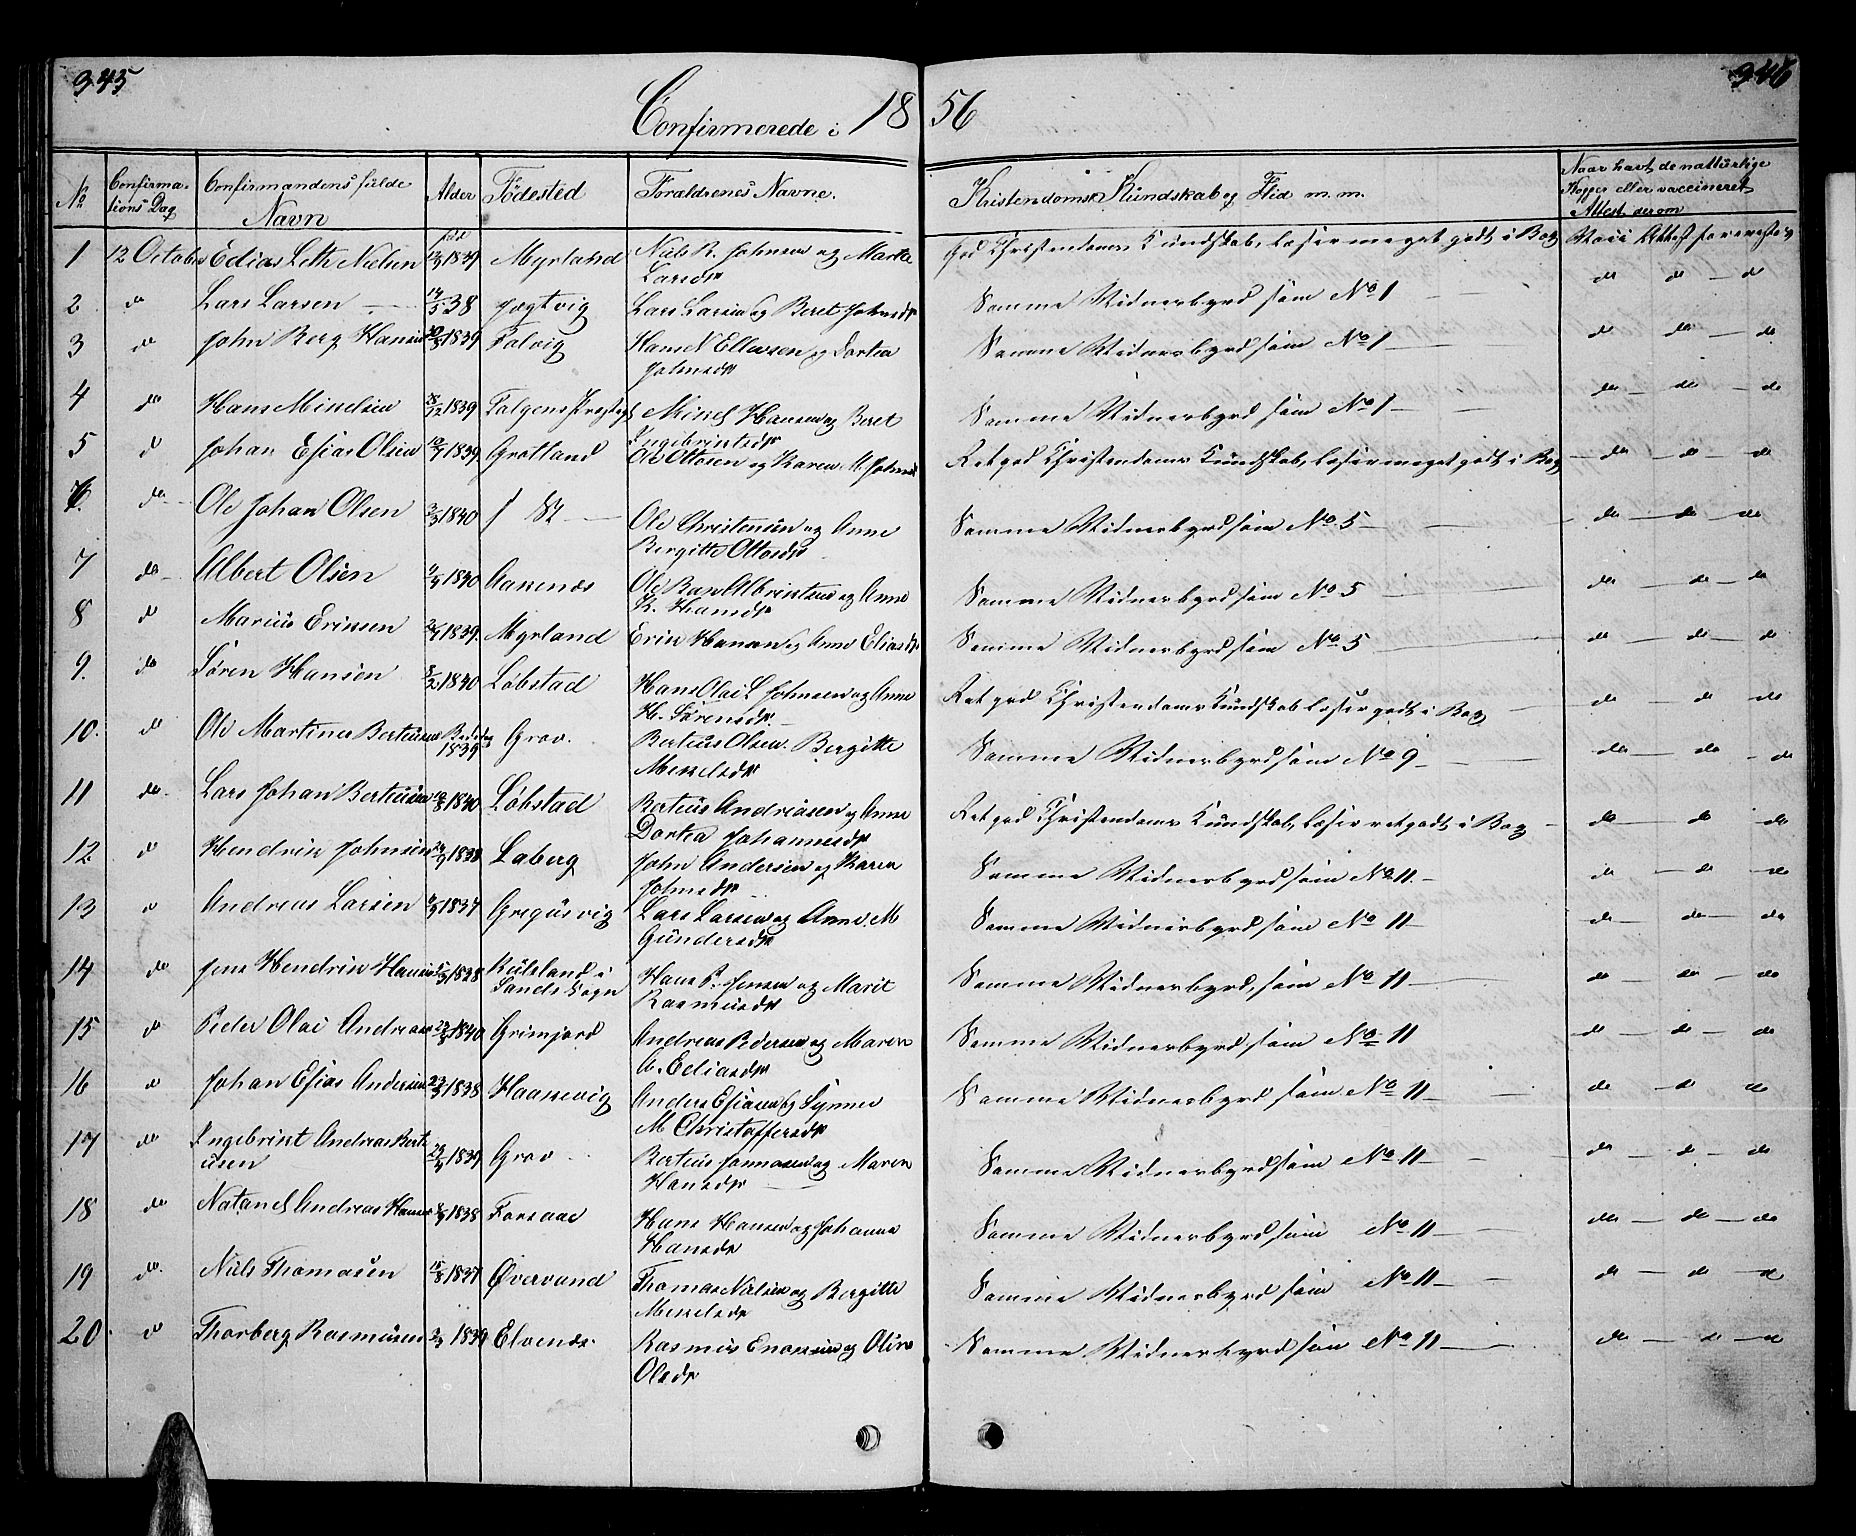 345
346
Confirmerede i 18 56
No
Confirma-
tions Dag
Confirmandens fulde
Navn
Alder
Födested
Foraldrenes Navne.
Kristendoms Kundskab og Flid m. m.
Naar havt de naturlige
Kopper eller vaccineret
Attest derom
1 12 Octobr Edias Leth Nielsen fød 1839 Myrland Niels R. Johnsen og Marta
Larsdr
God Christendoms Kundskab, læser meget godt i Bog
2 do Lars Larsen 14/5 38 Jægtvig Lars Larsen og Beret Johnsdr Samme Vidnesbyrd som No 1 do do do
3 do John Berg Hansen 1839 Falvig Hans N Ellevsen og Dortea
Johnsdr
Samme Vidnesbyrd som No 1 do do do
4 do Hans Mikelsen 28/12 1839 Hansen og Beret
Ingebrictsdr
Samme Vidnesbyrd som No 1 do do do
5 do Johan Esias Olsen 1839 Grotland Ole Ottosen og Karen M. Johnsdr
Ret god Christendoms Kundskab, læser meget godt i Bog do do do
6. do Ole Johan Olsen 2/3 1840 Ole Christensen og Anne
Bergitte Ottosdr
Samme Vidnesbyrd som No 5 do do do
7 do Albert Olsen 1840 Aanenæs Ole og Anne
K. Hansdr
Samme Vidnesbyrd som No 5 do do do
8 do Marius Ericsen 1839 Myrland Eric Hansen og Anne Eliasdr Samme Vidnesbyrd som No 5 do do do
9. do Sören Hansen 8/2 1840 Löbstad Hans Olai L Johnsen og Anne
H. Sörensdr
Ret god Christendoms Kundskab læser godt i Bog do do do
10. do Ole Martines Berteusen 1839 Grov. Berteus Olsen. Bergitte
Mikelsdr
Samme Vidnesbyrd som No 9 do do do
11 do Lars Johan Berteusen 1840 Löbstad Berteus Andreasen og Anne
Dortea Johannesdr
Ret god Christendoms Kundskab, læser ret godt i Bog do do do
12 do Hendrik Johnsen 1838 Laberg John Andersen og Karen
Johnsdr
Samme Vidnesbyrd som No 11 do do do
13 do Andreas Larsen 1837 Gregusvig Lars Larsen og Anne. M
Gundersdr
Samme Vidnesbyrd som No 11 do do do
14 do Jens Hendrik Hansen 1838 i
Sands Sogn
Hans P. Jensen og Marit
Rasmusdr
Samme Vidnesbyrd, som No 11 do do do
15 do Peder Olai Andreas 1840 Grimjord Andreas Pedersen og Maren
A. Ediasdr
Samme Vidnesbyrd som No 11 do do do
16 do Johan Esias Andersen 1838 Haakevig Anders Esiasen og Synne
M Christoffersdr
Samme Vidnesbyrd som No 11 do do do
17 do Ingebrict Andreas Bert-
eusen 1839 Grov Berteus Jonnasen og Maren
Hansdr
Samme Vidnesbyrd som No 11 do do do
18 do Natanel Andreas Hansen 1838 Forsaae Hans Hansen og Johanna
Hansdr
Samme Vidnesbyrd som No 11 do do do
19 do. Niels Thomasen 1837 Øvervand Thomas Nielsen og Bergitte
Mikelsdr
Samme Vidnesbyrd som No 11 do do do
20. do Thorberg Rasmusen 1839 Elvenæs Rasmus Enoksen og Oline
Olsdr
Samme Vidnesbyrd som No 11 do do do